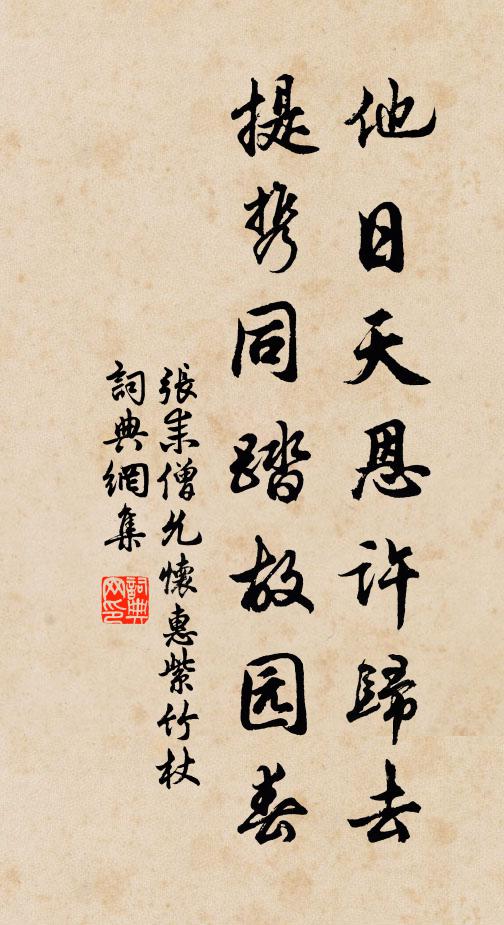 他日天恩許歸去
提携同踏故园春
張耒僧允懷惠紫竹杖
詞典網集
詞典网印